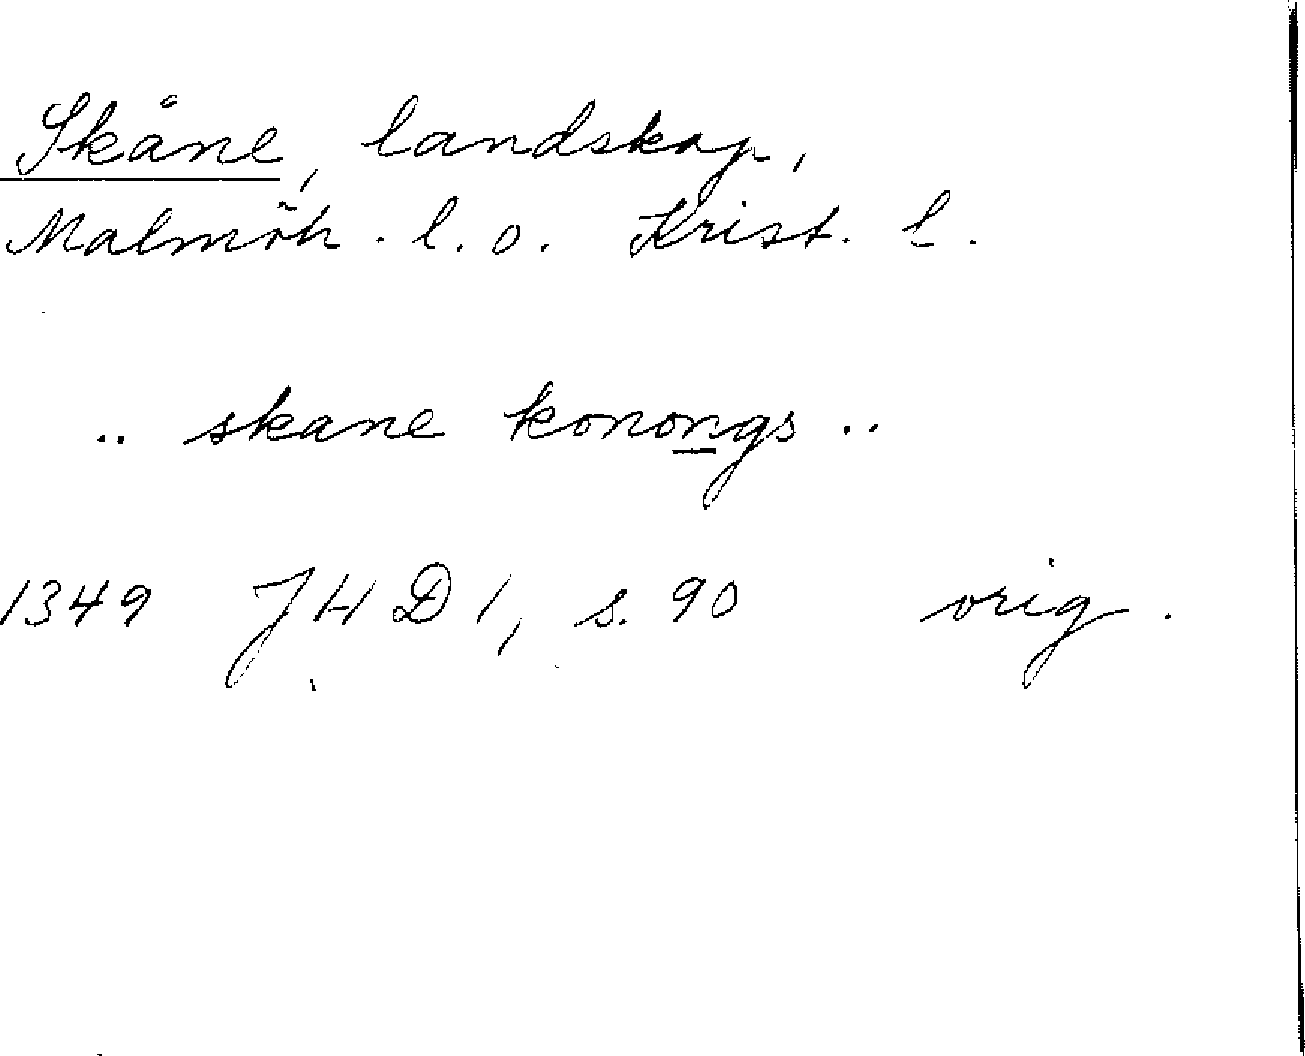 Skåne, landskap,
Malmöh. l. o. Krist. l.
.. skane konongs ..
1349 JHD 1, s. 90 orig.